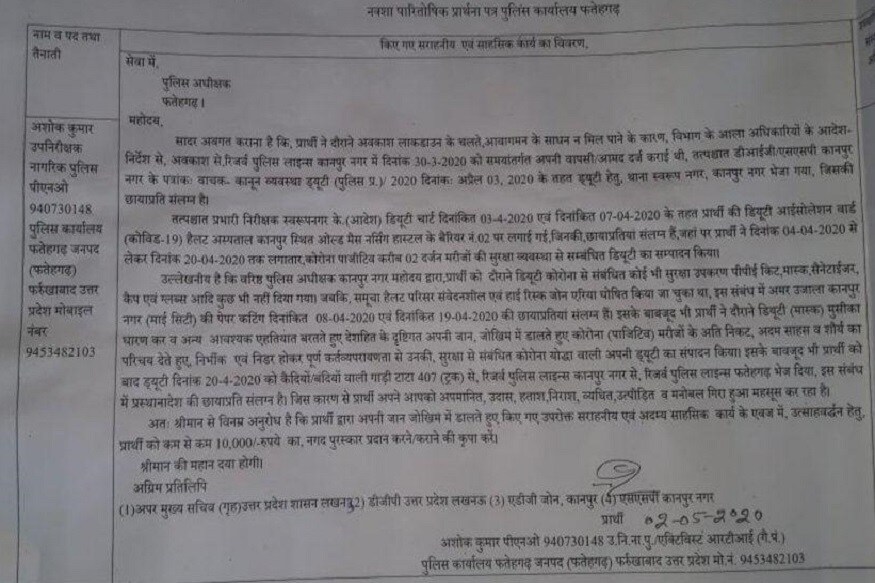 नक्शा पारितोषिक प्रार्थना पत्र पुलिस कार्यालय फतेहगढ़
नाम व पद तथा
तैनाती
किए गए सराहनीय एवं साहसिक कार्य का विवरण,
अशोक कुमार
उपनिरीक्षक
नागरिक पुलिस
पीएनओ
940730148
पुलिस कार्यालय
फतेहगढ़ जनपद
(फतेहगढ़)
फर्रुखाबाद उत्तर
प्रदेश मोबाइल
नंबर
9453482103
सेवा में,
पुलिस अधीक्षक
फतेहगढ़।
महोदय,
सादर अवगत कराना है कि, प्रार्थी ने दौराने अवकाश लाकडाउन के चलते,आवागमन के साधन न मिल पाने के कारण, विभाग के आला अधिकारियों के आदेश-
निर्देश से, अवकाश से,रिजर्व पुलिस लाइन्स कानपुर नगर में दिनांक 30-3-2020 को समयांतर्गत अपनी वापसी/आमद दर्ज कराई थी, तत्पश्चात डीआईजी/एसएसपी कानपुर
नगर के पत्रांकः वाचक- कानून व्यवस्था ड्यूटी (पुलिस प्र.)/ 2020 दिनांकः अप्रैल 03, 2020 के तहत ड्यूटी हेतु, थाना स्वरूप नगर, कानपुर नगर भेजा गया, जिसकी
छायाप्रति संलग्न है।
तत्पश्चात प्रभारी निरीक्षक स्वरूपनगर के.(आदेश) डियूटी चार्ट दिनांकित 03-4-2020 एवं दिनांकित 07-04-2020 के तहत प्रार्थी की डियूटी आईसोलेशन वार्ड
(कोविड-19) हैलट अस्पताल कानपुर स्थित ओल्ड मैस नर्सिंग हास्टल के बैरियर नं.02 पर लगाई गई,जिनकी,छायाप्रतियां संलग्न हैं,जहां पर प्रार्थी ने दिनांक 04-04-2020 से
लेकर दिनांक 20-04-2020 तक लगातार,कोरोना पाजीटिव करीब 02 दर्जन मरीजों की सुरक्षा व्यवस्था से सम्बंधित डियूटी का सम्पादन किया।
उल्लेखनीय है कि वरिष्ठ पुलिस अधीक्षक कानपुर नगर महोदय द्वारा,प्रार्थी को दौराने डियूटी कोरोना से संबंधित कोई भी सुरक्षा उपकरण पीपीई किट,मास्क,सैनेटाईजर,
कैप एवं ग्लब्स आदि कुछ भी नहीं दिया गया। जबकि, समूचा हैलट परिसर संवेदनशील एवं हाई रिस्क जोन एरिया घोषित किया जा चुका था, इस संबंध में अमर उजाला कानपुर
नगर (माई सिटी) की पेपर कटिंग दिनांकित 08-04-2020 एवं दिनांकित 19-04-2020 की छायाप्रतियां संलग्न हैं। इसके बाबजूद भी प्रार्थी ने दौराने डियूटी (मास्क) मुसीका
धारण कर व अन्य आवश्यक एहतियात बरतते हुए देशहित के दृष्टिगत अपनी जान, जोखिम में डालते हुए कोरोना (पाजिटिव) मरीजों के अति निकट, अदम साहस व शौर्य का
परिचय देते हुए, निर्भीक एवं निडर होकर पूर्ण कर्तव्यपरायणता से उनकी, सुरक्षा से संबंधित कोरोना योद्धा वाली अपनी ड्यूटी का संपादन किया। इसके बाबजूद भी प्रार्थी को
बाद ड्यूटी दिनांक 20-4-2020 को कैदियों/बंदियों वाली गाड़ी टाटा 407 (ट्रक) से, रिजर्व पुलिस लाइन्स कानपुर नगर से, रिजर्व पुलिस लाइन्स फतेहगढ़ भेज दिया, इस संबंध
में प्रस्थानादेश की छायाप्रति संलग्न है। जिस कारण से प्रार्थी अपने आपको अपमानित, उदास, हताश,निराश, व्यथित,उत्पीडित व मनोबल गिरा हुआ महसूस कर रहा है।
अतः श्रीमान से विनम्र अनुरोध है कि प्रार्थी द्वारा अपनी जान जोखिम में डालते हुए किए गए,उपरोक्त सराहनीय एवं अदम्य साहसिक कार्य के एवज में, उत्साहवर्द्धन हेतु,
प्रार्थी को कम से कम 10,000/-रुपये का, नगद पुरस्कार प्रदान करने/कराने की कृपा करें।
श्रीमान की महान दया होगी।
अग्रिम प्रतिलिपि
(1)अपर मुख्य सचिव (गृह)उत्तर प्रदेश शासन लखनऊ,2) डीजीपी उत्तर प्रदेश लखनऊ (3) एडीजी जोन, कानपुर (4) एसएसपी कानपुर नगर
प्रार्थी 02-05-2020
अशोक कुमार पीएनओ 940730148 उ.नि.ना.पु./एक्टिविस्ट आरटीआई (गै.पं.)
पुलिस कार्यालय फतेहगढ़ जनपद (फतेहगढ़) फर्रुखाबाद उत्तर प्रदेश मो.नं. 9453482103